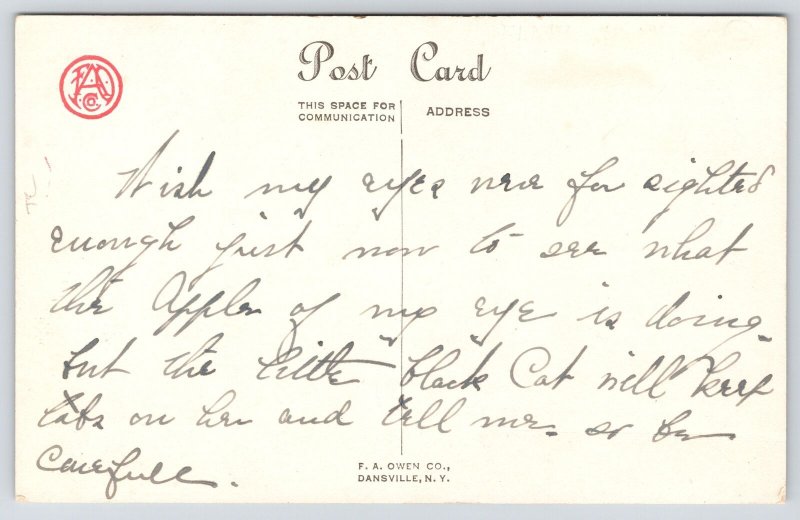 FAO Co.
Post Card
THIS SPACE FOR COMMUNICATION
ADDRESS
Wish my eyes were far sighted
enough just now to see what
the Apple of my eye is doing.
but the little "black" Cat will keep
tabs on her and tell me. so be
Carefull.
F. A. OWEN CO.,
DANSVILLE, N. Y.